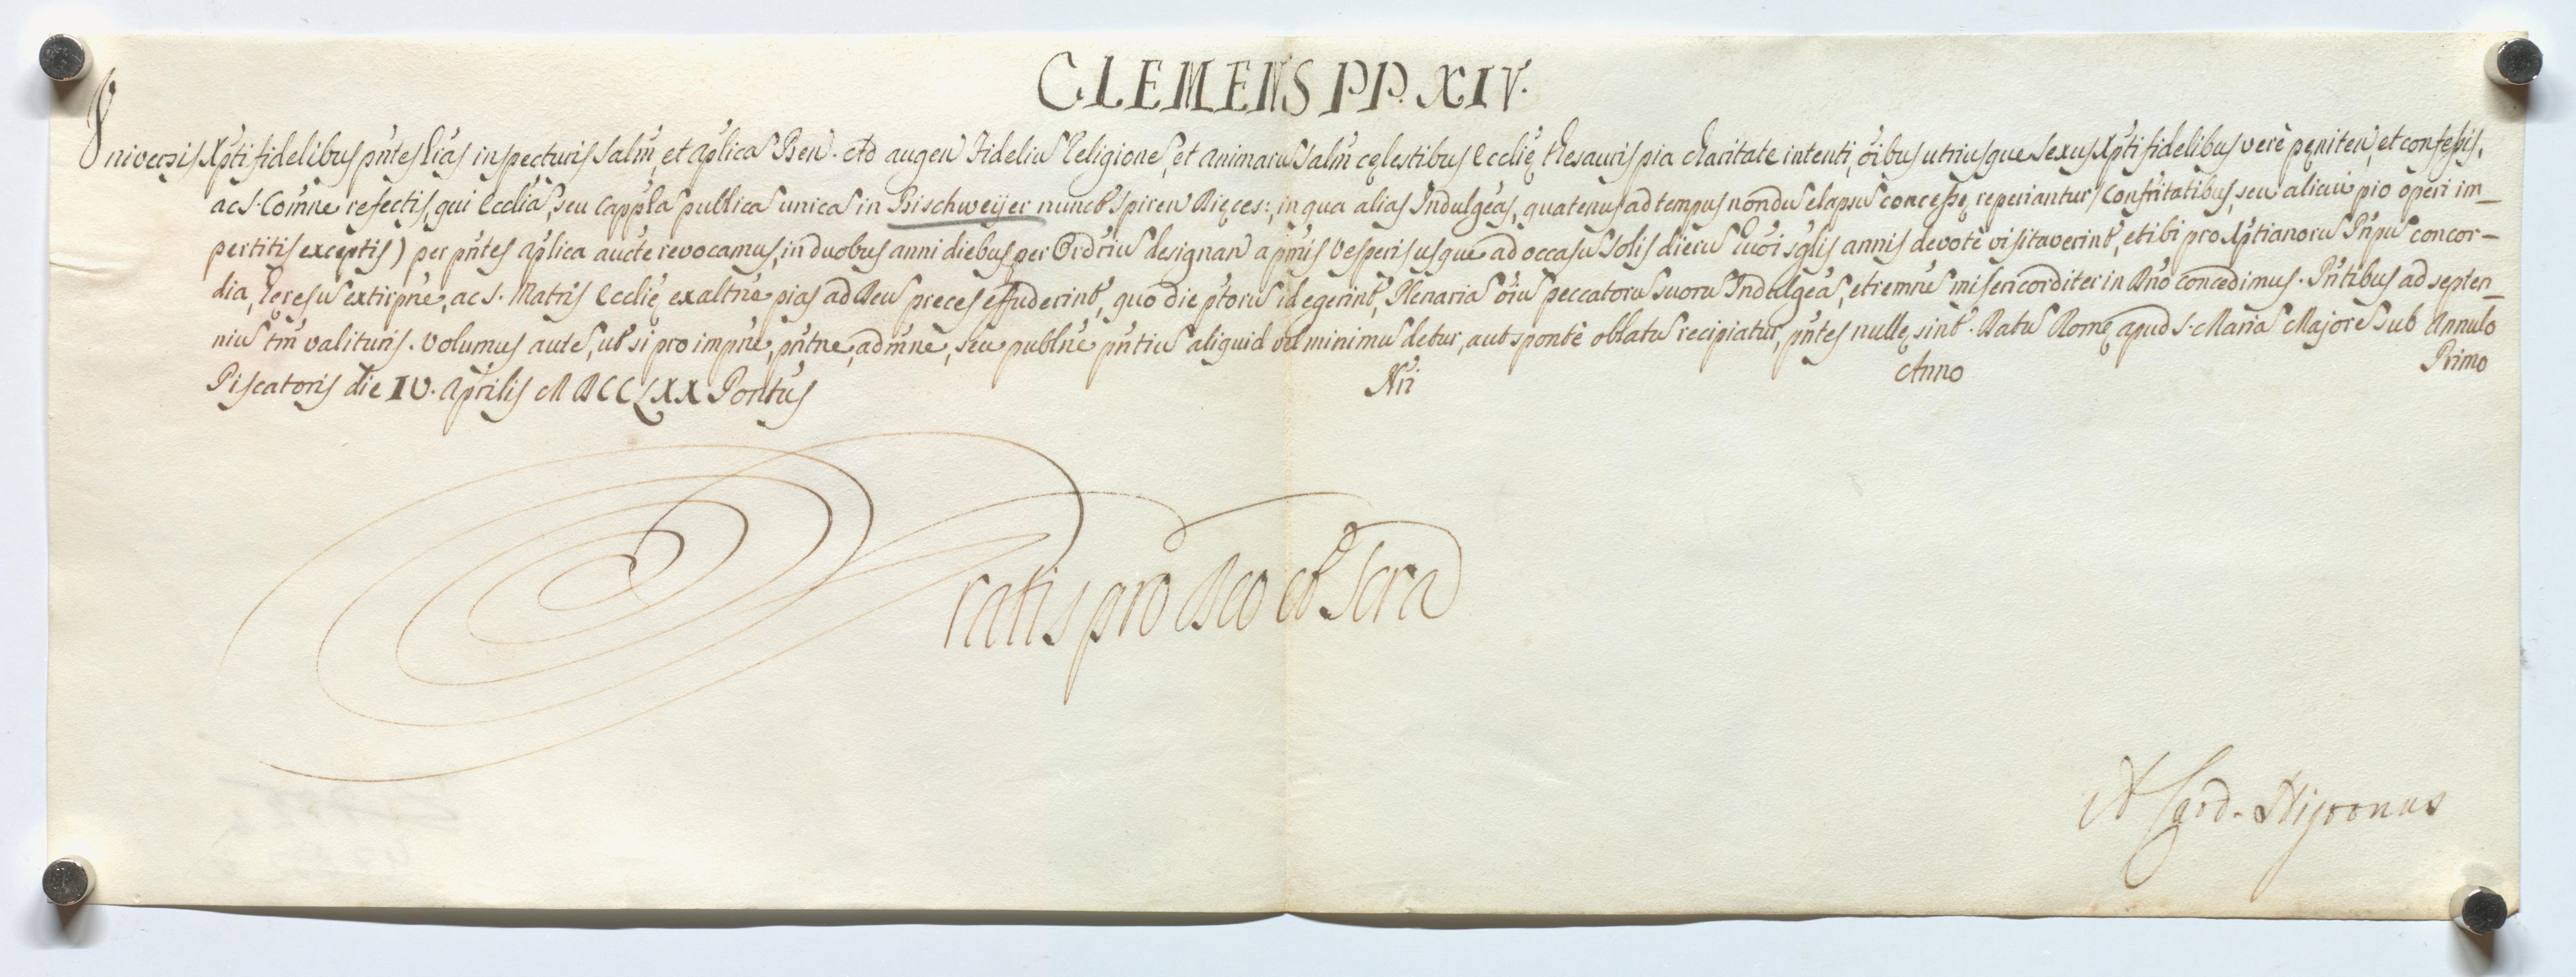 CLEMENS PP. XIV.
Universis Xpti fidelibus pntes lras inspecturis Salm, et aplica Ben. Ad augen Fideliu Religione, et animaru Salm cęlestibus Ecclię thesauris pia charitate intenti, oibus utriusque sexus Xpti fidelibus verè pęniten, et confessis,
ac S. Comne refectis, qui Ecclia, seu Cappla publica unica in Bischweijer nunct Spiren Dięces:, in qua alias Indulgeas, quatenus ad tempus nondu elapsu concessę, reperiantur, Confritatibus, seu alicui pio operi im_
pertitis exceptis) per pntes aplica aucte revocamus, in duobus anni diebus per Ordriu designan a pmis Vesperis usque ad occasu Solis dieru huoi sglis annis devotè visitaverint, et ibi pro Xptianoru Pnpu concor-
dia, heresu extirpne, ac S. Matris Ecclię exaltne pias ad Deu preces effuderint, quo die ptoru id egerint, Plenaria oiu peccatoru suoru Indulgea, et remne misericorditer in Dno concedimus. Pntibus ad septen_
niu tm valituris. Volumus aute, ut si pro impne, pntne, admne, seu publne pntiu aliquid vel minimu detur, aut sponte oblatu recipiatur, pntes nullę sint. Datu Romę apud S. Maria Majore sub Annulo
Piscatoris die IV. Aprilis MDCCLXX Pontus Nri Anno Primo
ratis pro Deo et Scra
A Card. Nigronus